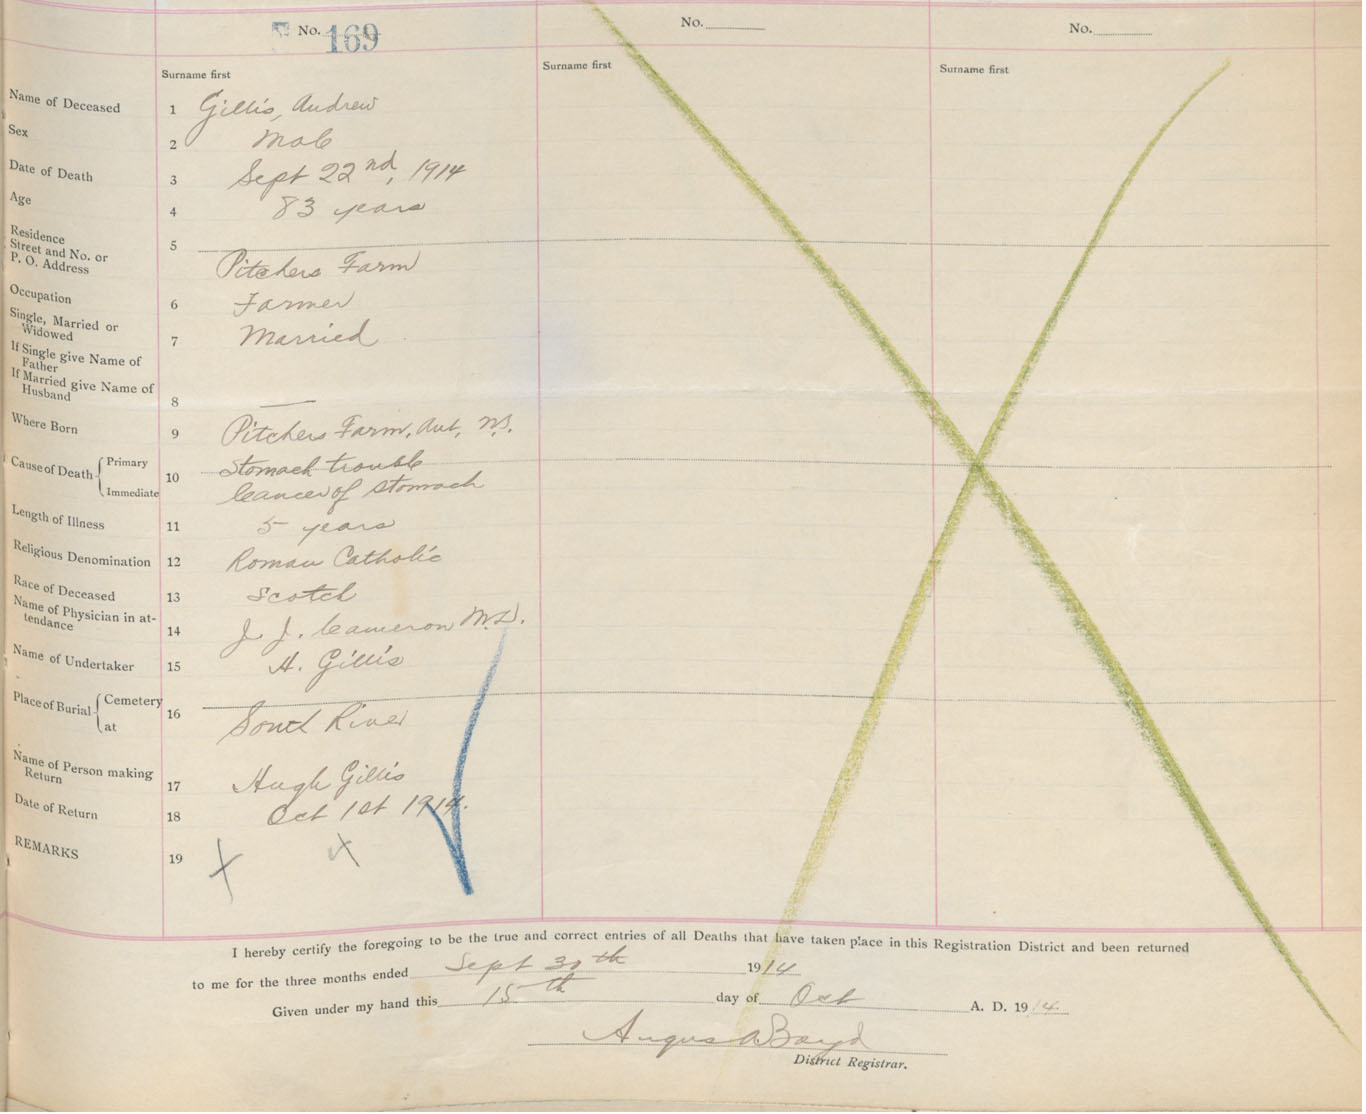 No. 169
No.
No.
Surname first
Surname first
Surname first
Name of Deceased 1 Gillis, Andrew
Sex 2 Male
Date of Death 3 Sept 22nd, 1914
Age 4 83 years
Residence
Street and No. or
P. O. Address 5 Pitchers Farm
Occupation 6 Farmer
Single, Married or
Widowed 7 Married
If Single give Name of
Father
If Married give Name of
Husband 8 —
Where Born 9 Pitchers Farm, Ant, N.S.
Cause of Death { Primary 10 Stomach trouble
Immediate Cancer of Stomach
Length of Illness 11 5 years
Religious Denomination 12 Roman Catholic
Race of Deceased 13 Scotch
Name of Physician in at-
tendance 14 J. J. Cameron M.D.
Name of Undertaker 15 H. Gillis
Place of Burial { Cemetery
at 16 South River
Name of Person making
Return 17 Hugh Gillis
Date of Return 18 Oct 1st 1914.
REMARKS 19 X X
I hereby certify the foregoing to be the true and correct entries of all Deaths that have taken place in this Registration District and been returned
to me for the three months ended Sept 30th 1914
Given under my hand this 15th day of Oct A. D. 1914
Angus A Boyd
District Registrar.